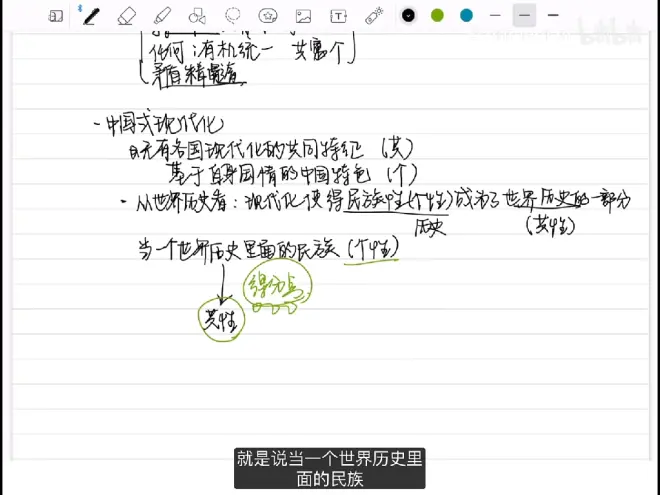 任何：有机统一 共寓个
矛盾精髓
- 中国式现代化
既有各国现代化的共同特征（共）
基于自身国情的中国特色（个）
· 从世界历史看：现代化使得民族性(个性)成为了世界历史的一部分
历史 (共性)
当一个世界历史里面的民族（个性）
得分点
共性
就是说当一个世界历史里
面的民族